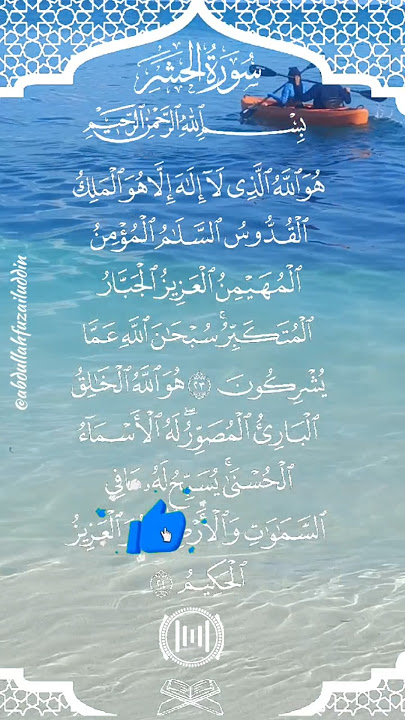 سُورَةُ الحَشْرِ
بِسْمِ ٱللَّهِ ٱلرَّحْمَٰنِ ٱلرَّحِيمِ
هُوَ ٱللَّهُ ٱلَّذِى لَآ إِلَٰهَ إِلَّا هُوَ ٱلْمَلِكُ
ٱلْقُدُّوسُ ٱلسَّلَٰمُ ٱلْمُؤْمِنُ
ٱلْمُهَيْمِنُ ٱلْعَزِيزُ ٱلْجَبَّارُ
ٱلْمُتَكَبِّرُ ۚ سُبْحَٰنَ ٱللَّهِ عَمَّا
يُشْرِكُونَ ٢٣ هُوَ ٱللَّهُ ٱلْخَٰلِقُ
ٱلْبَارِئُ ٱلْمُصَوِّرُ ۖ لَهُ ٱلْأَسْمَآءُ
ٱلْحُسْنَىٰ ۚ يُسَبِّحُ لَهُۥ مَا فِي
ٱلسَّمَٰوَٰتِ وَٱلْأَرْضِ ٱلْعَزِيزُ
ٱلْحَكِيمُ ٢٤
@abdullahfuzailaddin